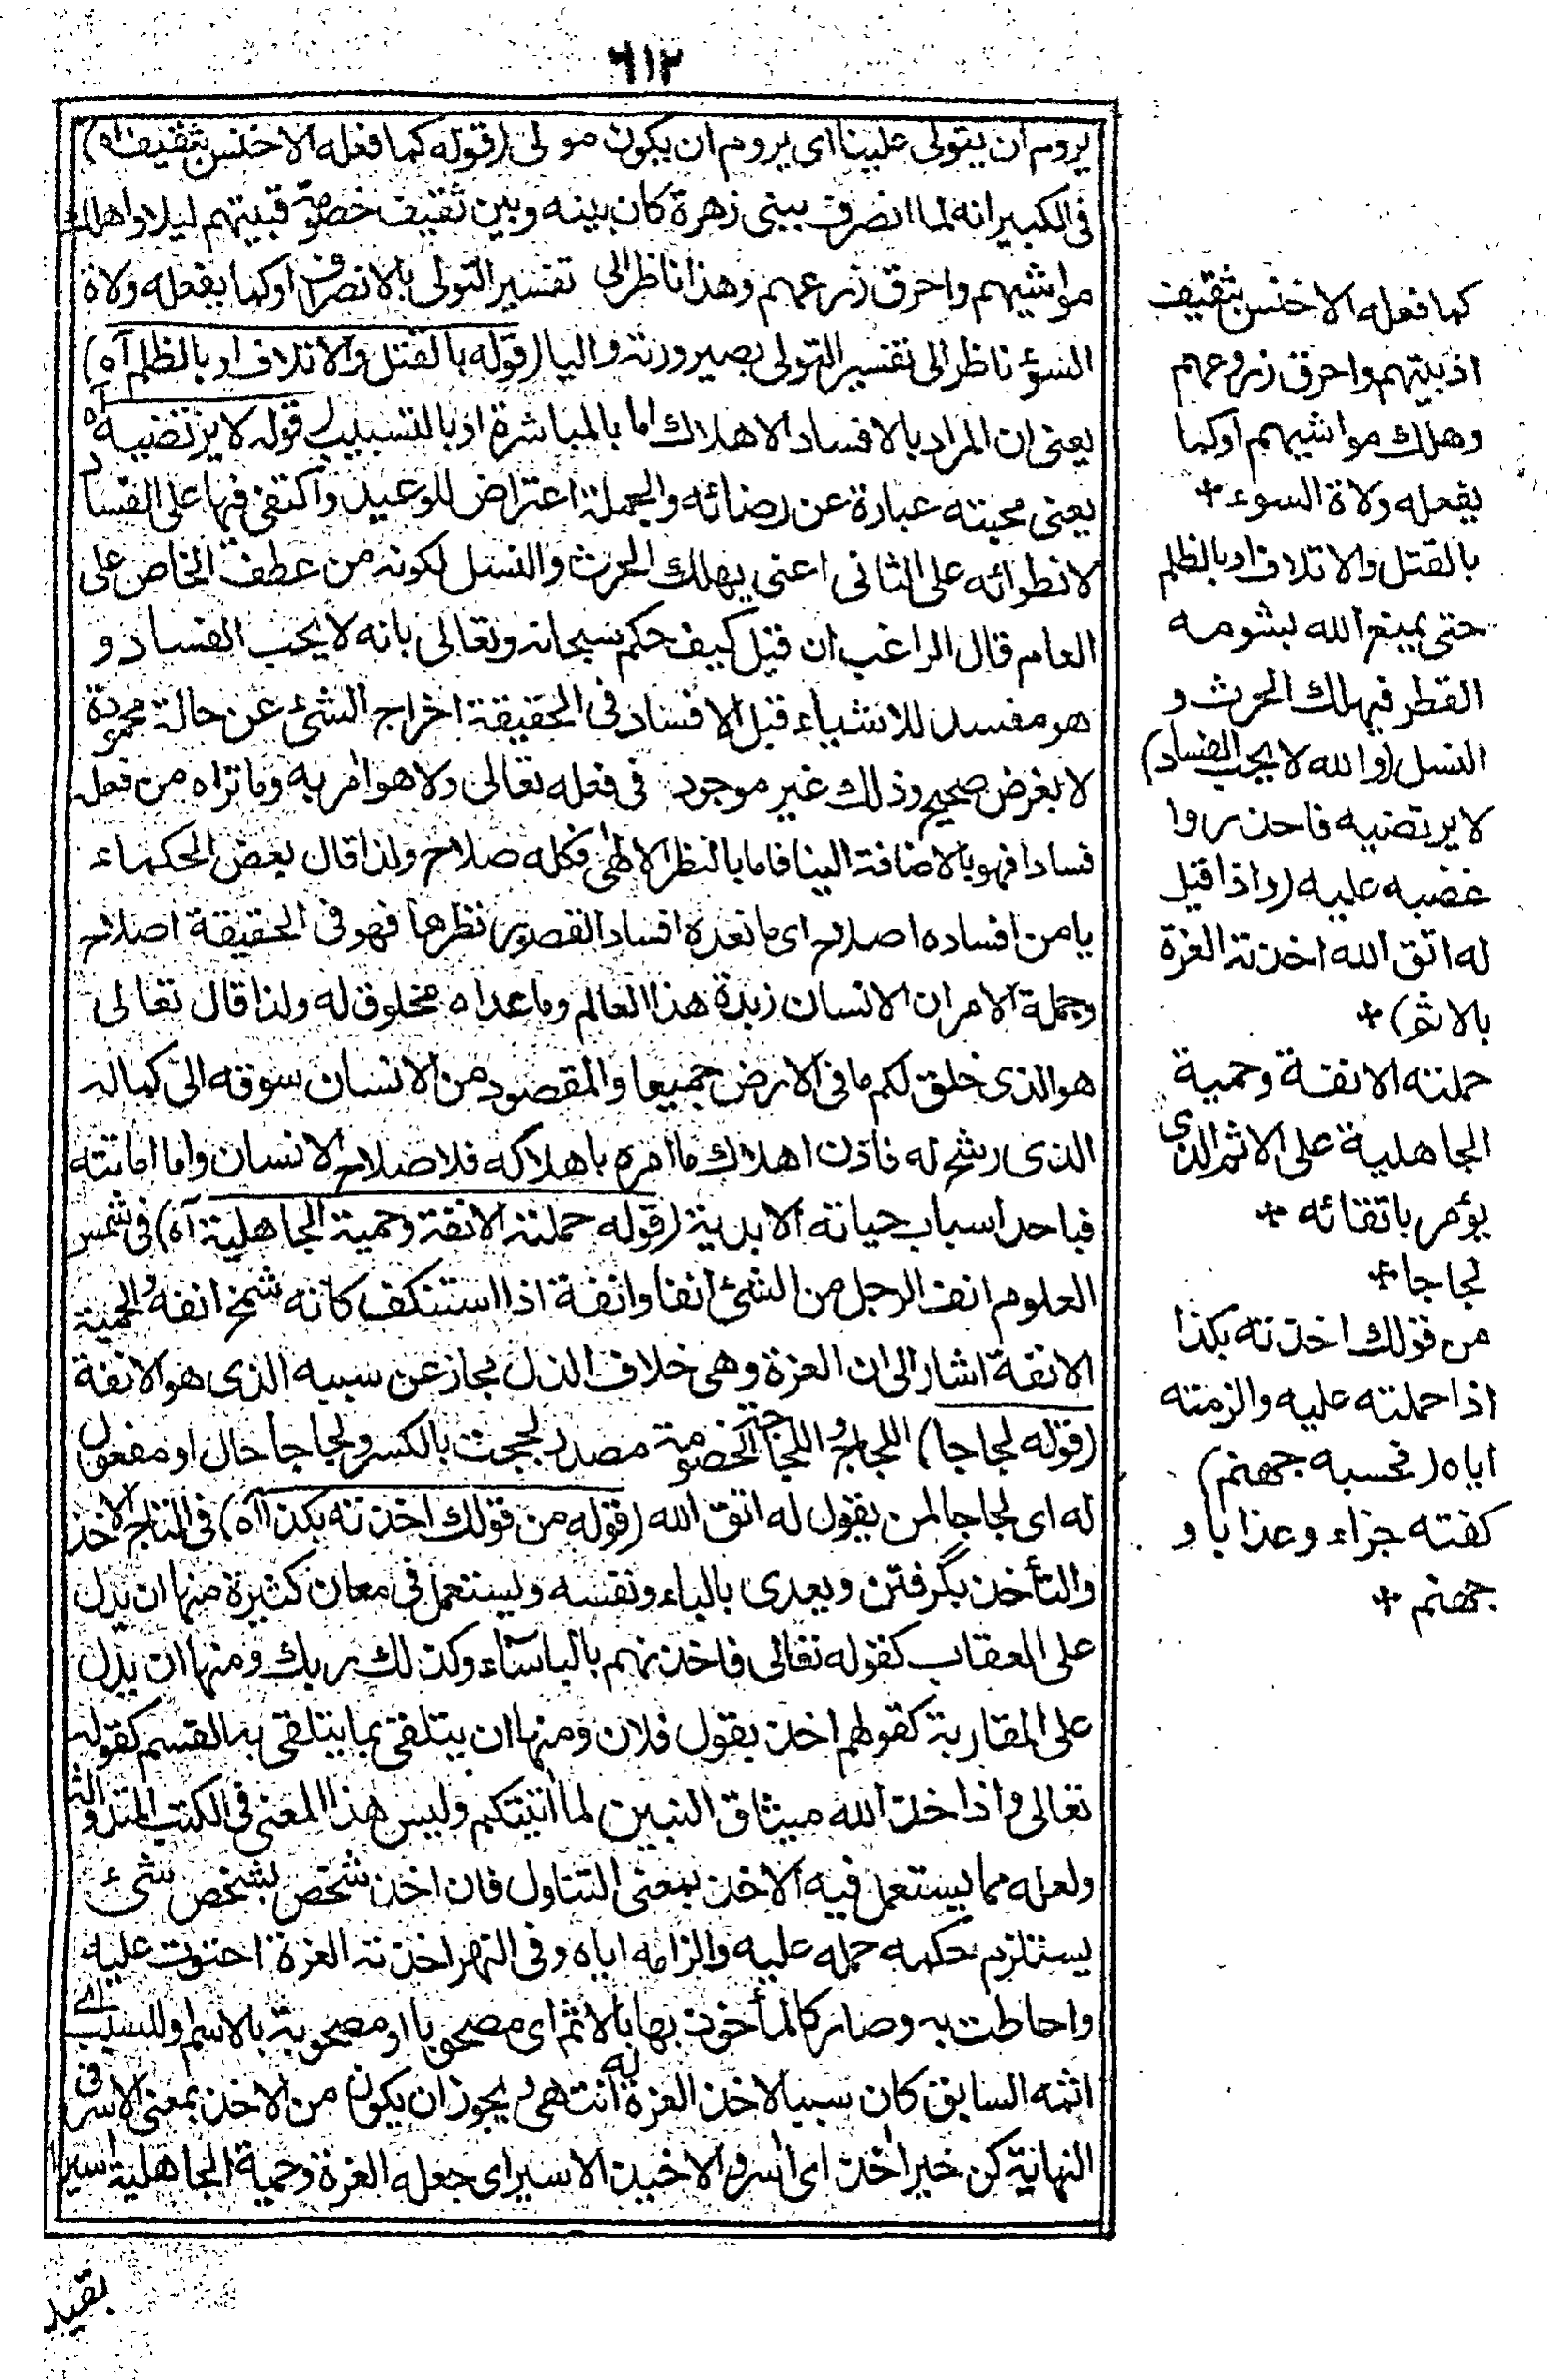 ٦١٢
يروم ان يتولى علينا اى يروم ان يكون مولى (قوله كما فعله الاخنس بثقيف اه)
فى الكبير انه لما انصرف ببنى زهرة كان بينه وبين ثقيف خصومة فبيتهم ليلا واهلك
مواشيهم واحرق زرعهم وهذا ناظر الى تفسير التولى بالانصراف او كما يفعله ولاة
السوء ناظر الى تفسير التولى بصيرورته واليا (قوله بالقتل والاتلاف او بالظلم آه)
يعنى ان المراد بالافساد الاهلاك اما بالمباشرة او بالتسبيب (قوله لا يرتضيه آه)
يعنى محبته عبارة عن رضائه والجملة اعتراض للوعيد واكتفى فيها على الفساد
لانطوائه على الثانى اعنى يهلك الحرث والنسل لكونه من عطف الخاص على
العام قال الراغب ان قيل كيف حكم سبحانه وتعالى بانه لا يحب الفساد و
هو مفسد للاشياء قيل الافساد فى الحقيقة اخراج الشئ عن حالة محمودة
لا بغرض صحيح وذلك غير موجود فى فعله تعالى ولا هو امر به وما تراه من فعله
فسادا فهو بالاضافة الينا فاما بالنظر الالهى فكله صلاح ولذا قال بعض الحكماء
يا من افساده اصلاح اى ما نعده افساد القصور نظرها فهو فى الحقيقة اصلاح
وجملة الامر ان الانسان زبدة هذا العالم وما عداه مخلوق له ولذا قال تعالى
هو الذى خلق لكم ما فى الارض جميعا والمقصود من الانسان سوقه الى كماله
الذى رشح له فاذن اهلاك ما امره باهلاكه فلاصلاح الانسان واما اماتته
فباحد اسباب حياته الابدية (قوله حملته الانفة وحمية الجاهلية آه) فى شمس
العلوم انف الرجل من الشئ انفا وانفة اذا استنكف كانه شمخ انفه والحمية
الانفة اشار الى ان العزة وهى خلاف الذل مجاز عن سببه الذى هو الانفة
(قوله لجاجا) اللجاج واللجاجة الخصومة مصدر لججت بالكسر ولجاجا حال او مفعول
له اى لجاجا لمن يقول له اتق الله (قوله من قولك اخذته بكذا آه) فى التاج الاخذ
والتأخذ بگرفتن ويعدى بالباء ونفسه ويستعمل فى معان كثيرة منها ان يدل
على العقاب كقوله تعالى فاخذنهم بالباساء وكذلك ربك ومنها ان يدل
على المقاربة كقولهم اخذ يقول فلان ومنها ان يتلقى بما يتلقى به القسم كقوله
تعالى واذ اخذ الله ميثاق النبين لما اتيتكم وليس هذا المعنى فى الكتب المتداولة
ولعله مما يستعمل فيه الاخذ بمعنى التناول فان اخذ شخص بشخص شئ
يستلزم حكمه حمله عليه والزامه اياه وفى النهر اخذته العزة احتوت عليه
واحاطت به وصار كالمأخوذ بها بالاثم اى مصحوبا او مصحوبة بالاسم وللسبب اى
اثمه السابق كان سببا لاخذ العزة له انتهى ويجوز ان يكون من الاخذ بمعنى الاسر فى
النهاية كن خير اخذ اى اسر والاخيذ الاسير اى جعله العزة وحمية الجاهلية اسيرا
بقيد
كما فعله الاخنس بثقيف
اذ بيتهم واحرق زروعهم
وهلك مواشيهم او كما
يفعله ولاة السوء +
بالقتل والاتلاف او بالظلم
حتى يمنع الله بشومه
القطر فيهلك الحرث و
النسل (والله لا يحب الفساد)
لا يرتضيه فاحذروا
غضبه عليه (واذا قيل
له اتق الله اخذته العزة
بالاثم) +
حملته الانفة وحمية
الجاهلية على الاثم الذى
يؤمر باتقائه +
لجاجا +
من قولك اخذته بكذا
اذا حملته عليه والزمته
اياه (فحسبه جهنم)
كفته جزاء وعذابا و
جهنم +